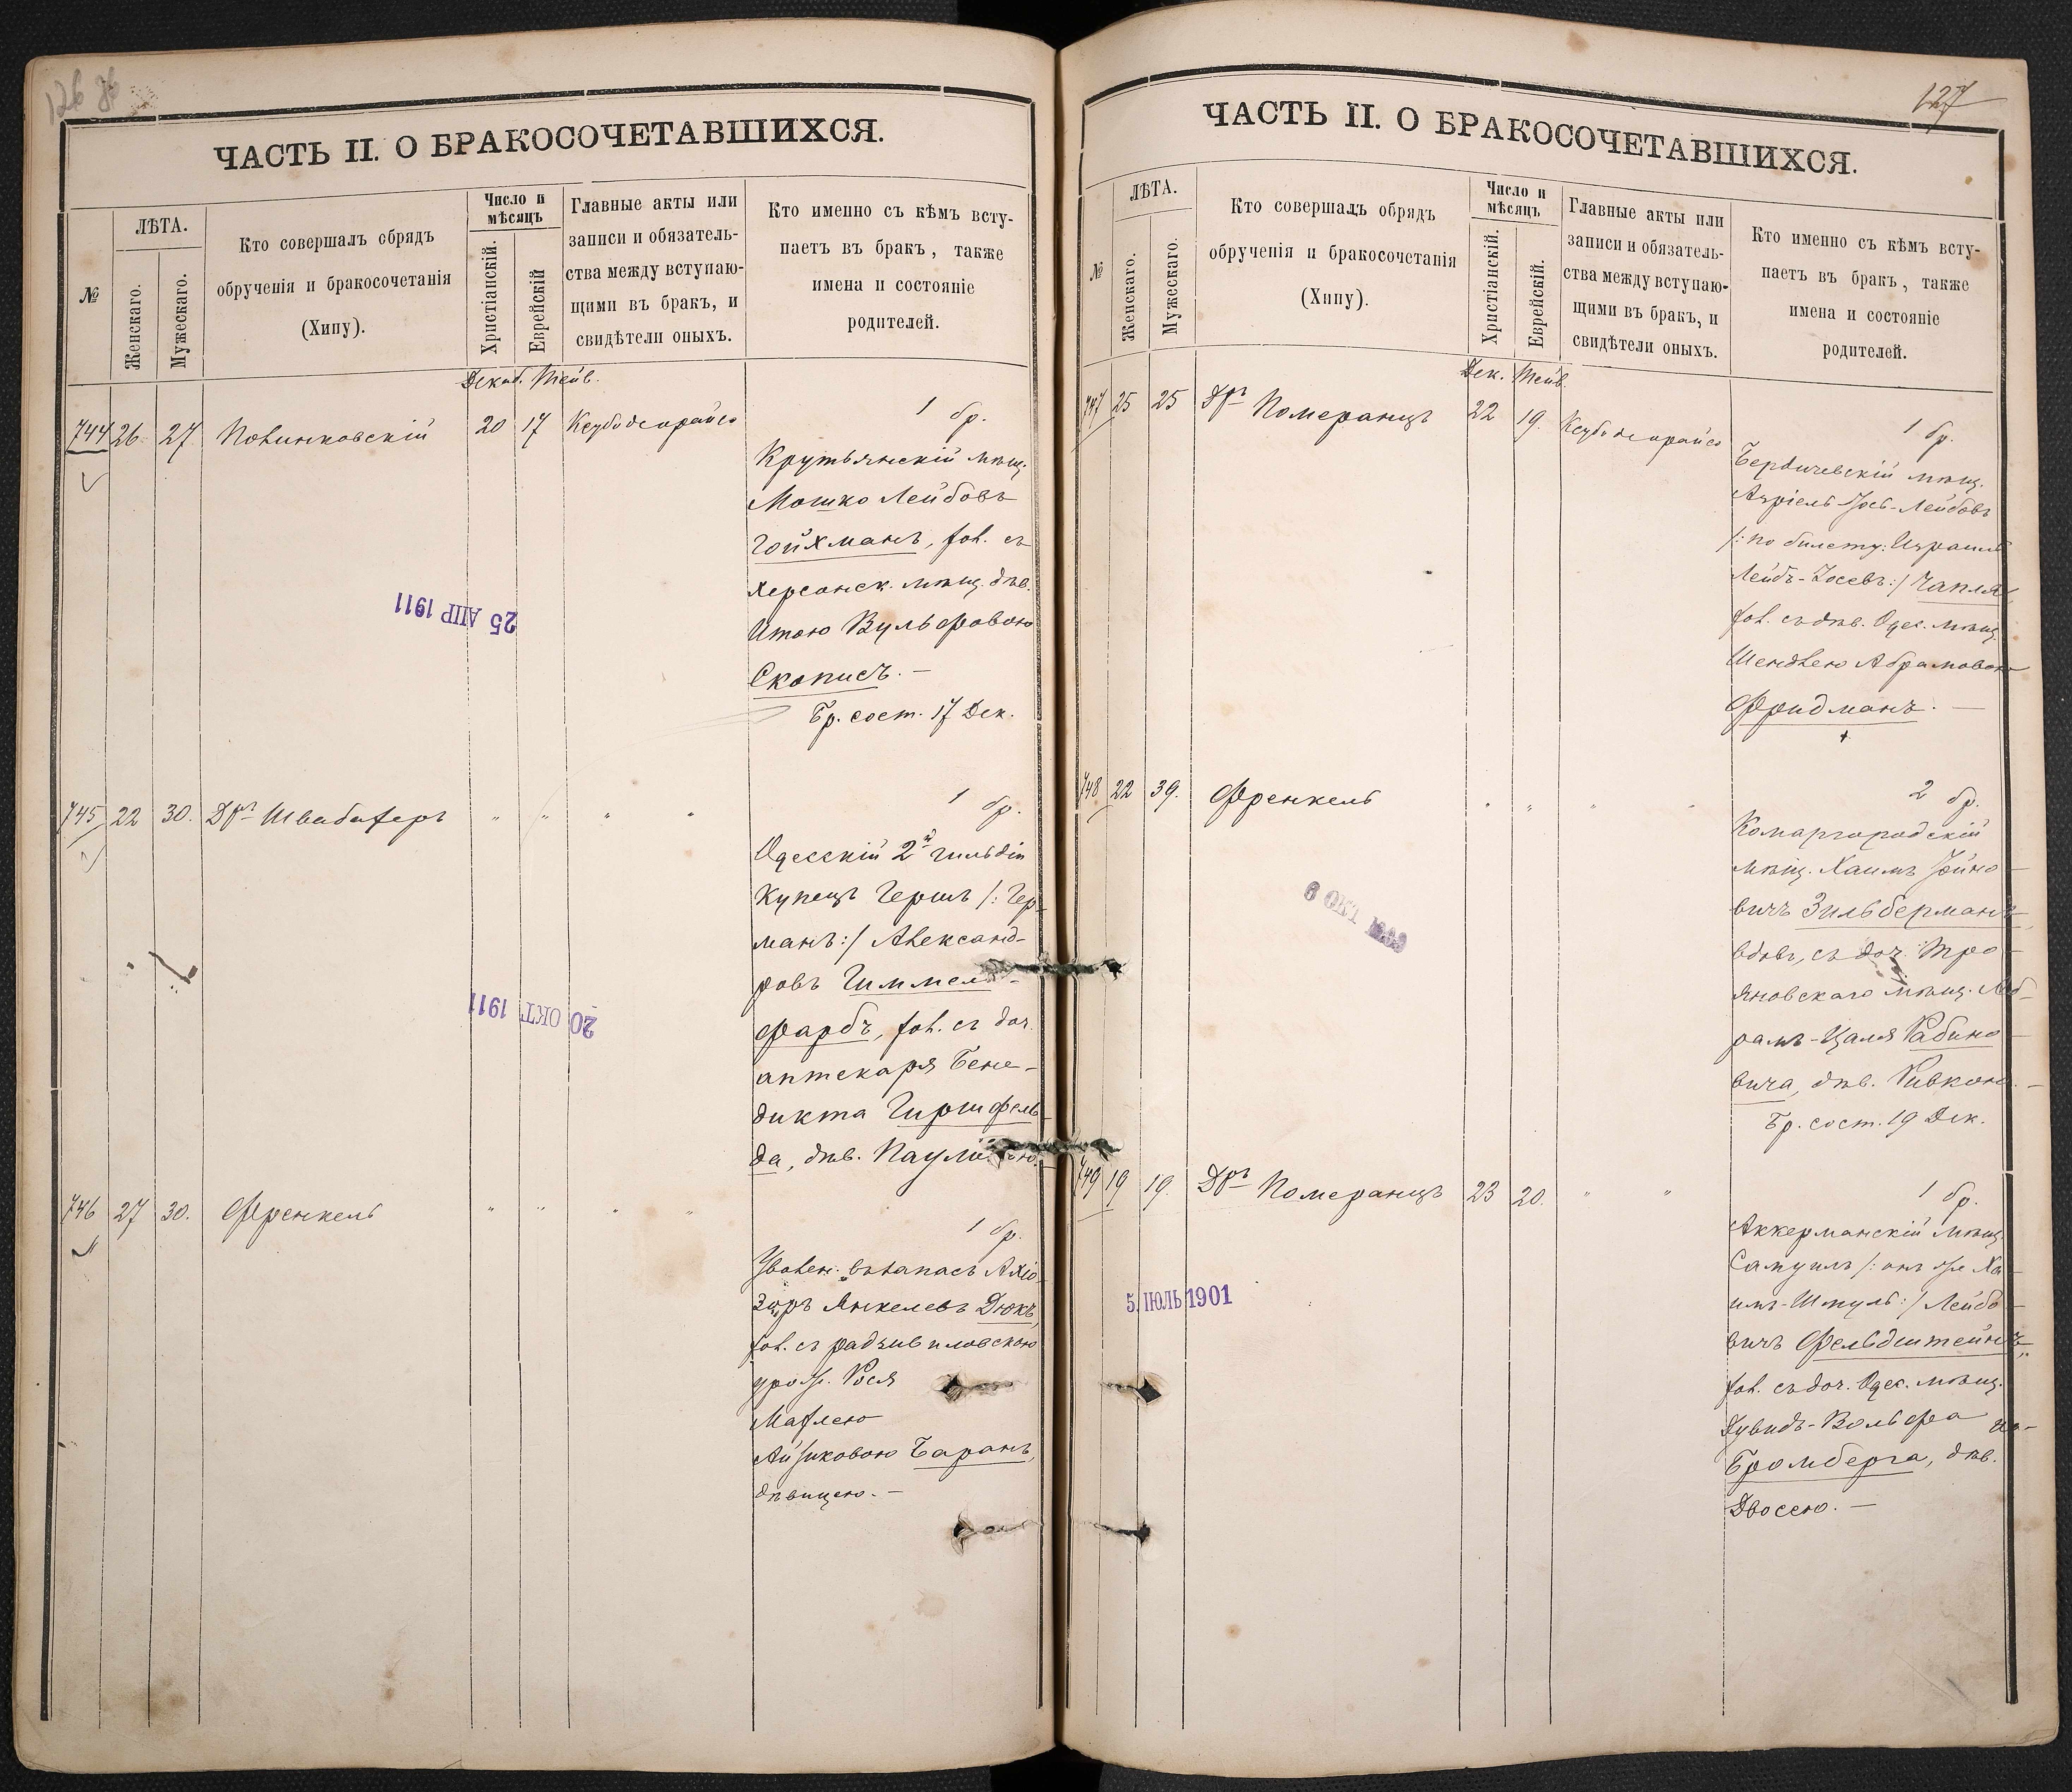 126 об
ЧАСТЬ II. О БРАКОСОЧЕТАВШИХСЯ.
№
ЛѢТА.
Женскаго.
Мужескаго.
Кто совершалъ обрядъ
обрученія и бракосочетанія
(Хипу).
Число и
мѣсяцъ
Христіанскій.
Еврейскій
Главные акты или
записи и обязатель-
ства между вступаю-
щими въ бракъ, и
свидѣтели оныхъ.
Кто именно съ кѣмъ всту-
паетъ въ бракъ, также
имена и состояніе
родителей.
Декаб. Тейв.
744 26 27 Полинковскій 20 17 Ксубо деорайсо
1 бр.
Крутьянскій мѣщ.
Мошко Лейбовъ
Гойхманъ, хол. съ
Херсонск. мѣщ. дѣв.
Итою Вульфовою
Скописъ. —
Бр. сост. 17 Дек.
25 АПР 1911
745 22 30. Дръ Швабахеръ " " " "
1 бр.
Одесскій 2й гильдіи
Купецъ Гершъ /: Гер-
манъ :/ Александ-
ровъ Гиммель-
фарбъ, хол. съ доч.
аптекаря Бене-
дикта Гиршфель-
да, дѣв.
20 ОКТ 1911
746 27 30. Френкель " " " "
1 бр.
Уволен. въ запасъ
Янкелевъ Дюкъ,
хол. съ радзивиловскою
урож. Рося
Махлею
Айзиковою Баранъ,
дѣвицею. —
127
ЧАСТЬ II. О БРАКОСОЧЕТАВШИХСЯ.
№
ЛѢТА.
Женскаго.
Мужескаго.
Кто совершалъ обрядъ
обрученія и бракосочетанія
(Хипу).
Число и
мѣсяцъ
Христіанскій.
Еврейскій.
Главные акты или
записи и обязатель-
ства между вступаю-
щими въ бракъ, и
свидѣтели оныхъ.
Кто именно съ кѣмъ всту-
паетъ въ бракъ, также
имена и состояніе
родителей.
Дек. Тейв.
747 25 25 Дръ Померанцъ 22 19. Ксубо деорайсо
1 бр.
Бердичевскій мѣщ.
Азріель Іось-Лейбовъ
/: по билету: Израиль
Лейбъ-Іосевъ :/ Чапля,
хол. съ дѣв. Одес. мѣщ.
Шендлею Абрамовою
Фридманъ. —
748 22 39. Френкель " " " "
2 бр.
Комаргородскій
мѣщ. Хаимъ Зейно-
вичъ Зильберманъ,
вдовъ, съ доч. Тро-
яновскаго мѣщ. Аб-
рамъ-Цаля Рабино-
вича, дѣв. Ривкою. —
Бр. сост. 19 Дек.
6 ОКТ
749 19 19. Дръ Померанцъ 23 20. " "
1 бр.
Аккерманскій мѣщ.
Самуилъ /: онъ же Ха-
имъ-Шмуль :/ Лейбо-
вичъ Фельдштейнъ,
хол. съ доч. Одес. мѣщ.
Дувидъ-Вольфа
Бромберга, дѣв.
Двосею. —
5. ІЮЛЬ 1901